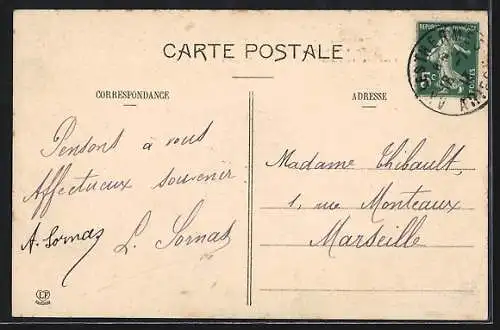 CARTE POSTALE
CORRESPONDANCE
Pensont à vous
Affectueux souvenir
A. Sornas L. Sornas
ADRESSE
Madame Thibault,
1, rue Monteaux
Marseille
REPUBLIQUE FRANÇAISE
5c
POSTES